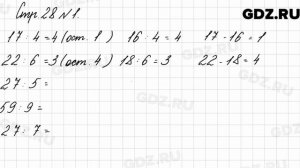 GDZ.RU
Стр. 28 №1.
17 : 4 = 4 (ост. 1) 16 : 4 = 4 17 - 16 = 1
22 : 6 = 3 (ост. 4) 18 : 6 = 3 22 - 18 = 4
27 : 5 =
59 : 9 =
27 : 7 =